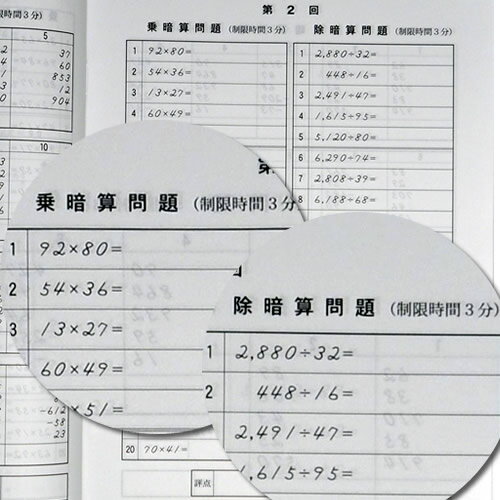 5
37
60
853
12
904
10
-612
-58
23
第 2 回
乗暗算問題 (制限時間3分)
1 92×80=
2 54×36=
3 13×27=
4 60×49=
20 70×41=
評点
除暗算問題 (制限時間3分)
1 2,880÷32=
2 448÷16=
3 2,491÷47=
4 1,615÷95=
5 5,120÷80=
6 6,290÷74=
7 2,808÷39=
8 6,188÷68=
乗暗算問題 (制限時間3分
1 92×80=
2 54×36=
3 13×27=
60×49=
×51=
除暗算問題 (制限時間3
1 2,880÷32=
2 448÷16=
2,491÷47=
1,615÷95=